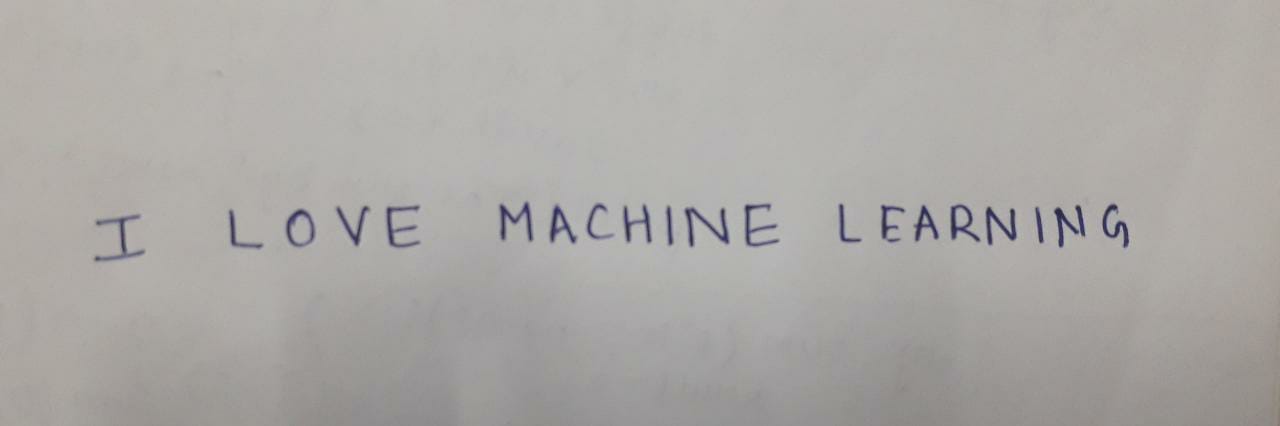 I LOVE MACHINE LEARNING